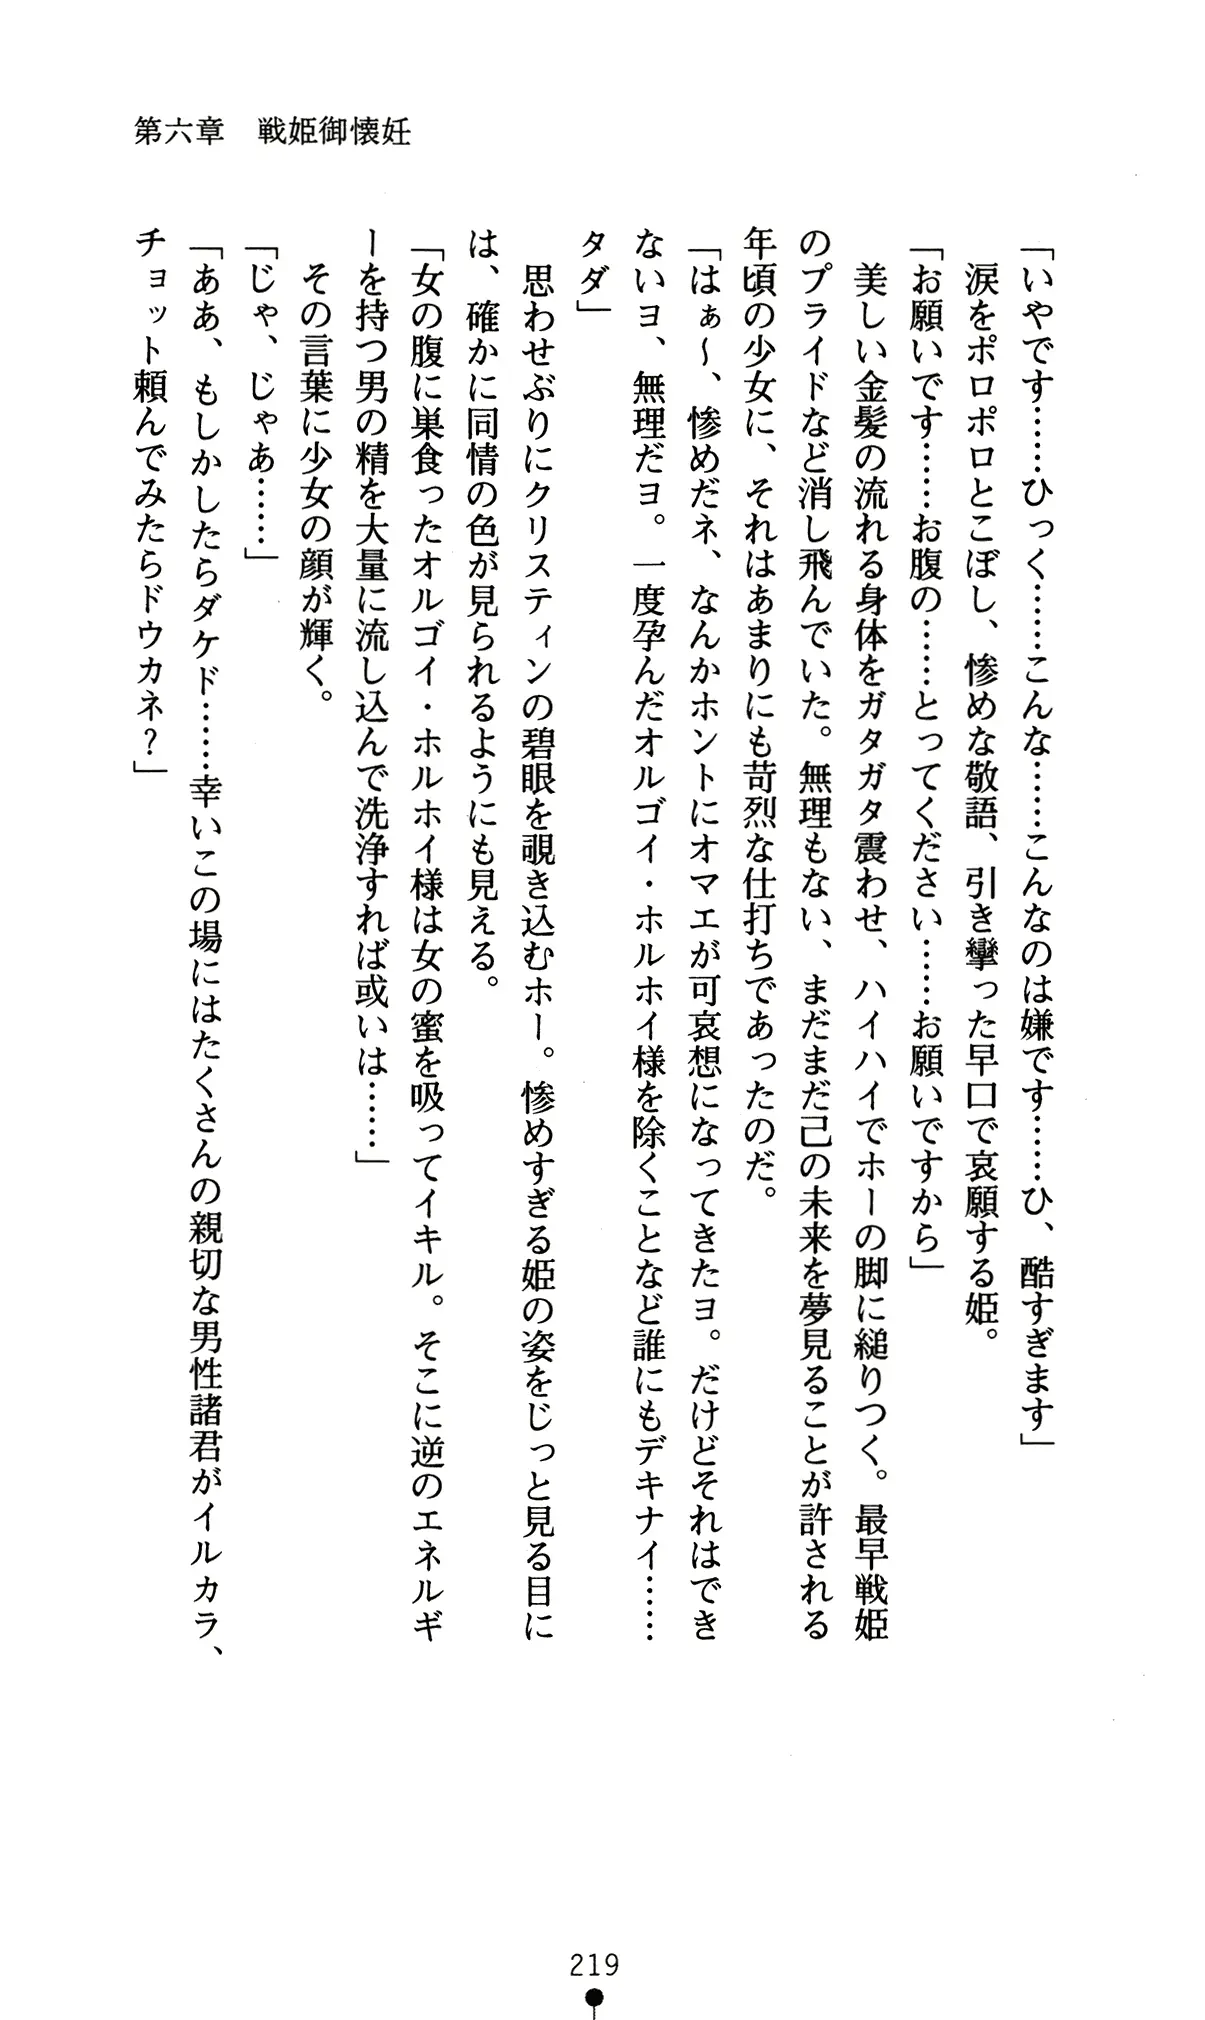 第六章　戦姫御懐妊
「いやです……ひっく……こんな……こんなのは嫌です……ひ、酷すぎます」
　涙をポロポロとこぼし、惨めな敬語、引き攣った早口で哀願する姫。
「お願いです……お腹の……とってください……お願いですから」
　美しい金髪の流れる身体をガタガタ震わせ、ハイハイでホーの脚に縋りつく。最早戦姫
のプライドなど消し飛んでいた。無理もない、まだまだ己の未来を夢見ることが許される
年頃の少女に、それはあまりにも苛烈な仕打ちであったのだ。
「はぁ～、惨めだネ、なんかホントにオマエが可哀想になってきたヨ。だけどそれはでき
ないヨ、無理だヨ。一度孕んだオルゴイ・ホルホイ様を除くことなど誰にもデキナイ……
タダ」
　思わせぶりにクリスティンの碧眼を覗き込むホー。惨めすぎる姫の姿をじっと見る目に
は、確かに同情の色が見られるようにも見える。
「女の腹に巣食ったオルゴイ・ホルホイ様は女の蜜を吸ってイキル。そこに逆のエネルギ
ーを持つ男の精を大量に流し込んで洗浄すれば或いは……」
　その言葉に少女の顔が輝く。
「じゃ、じゃあ……」
「ああ、もしかしたらダケド……幸いこの場にはたくさんの親切な男性諸君がイルカラ、
チョット頼んでみたらドウカネ？」
219